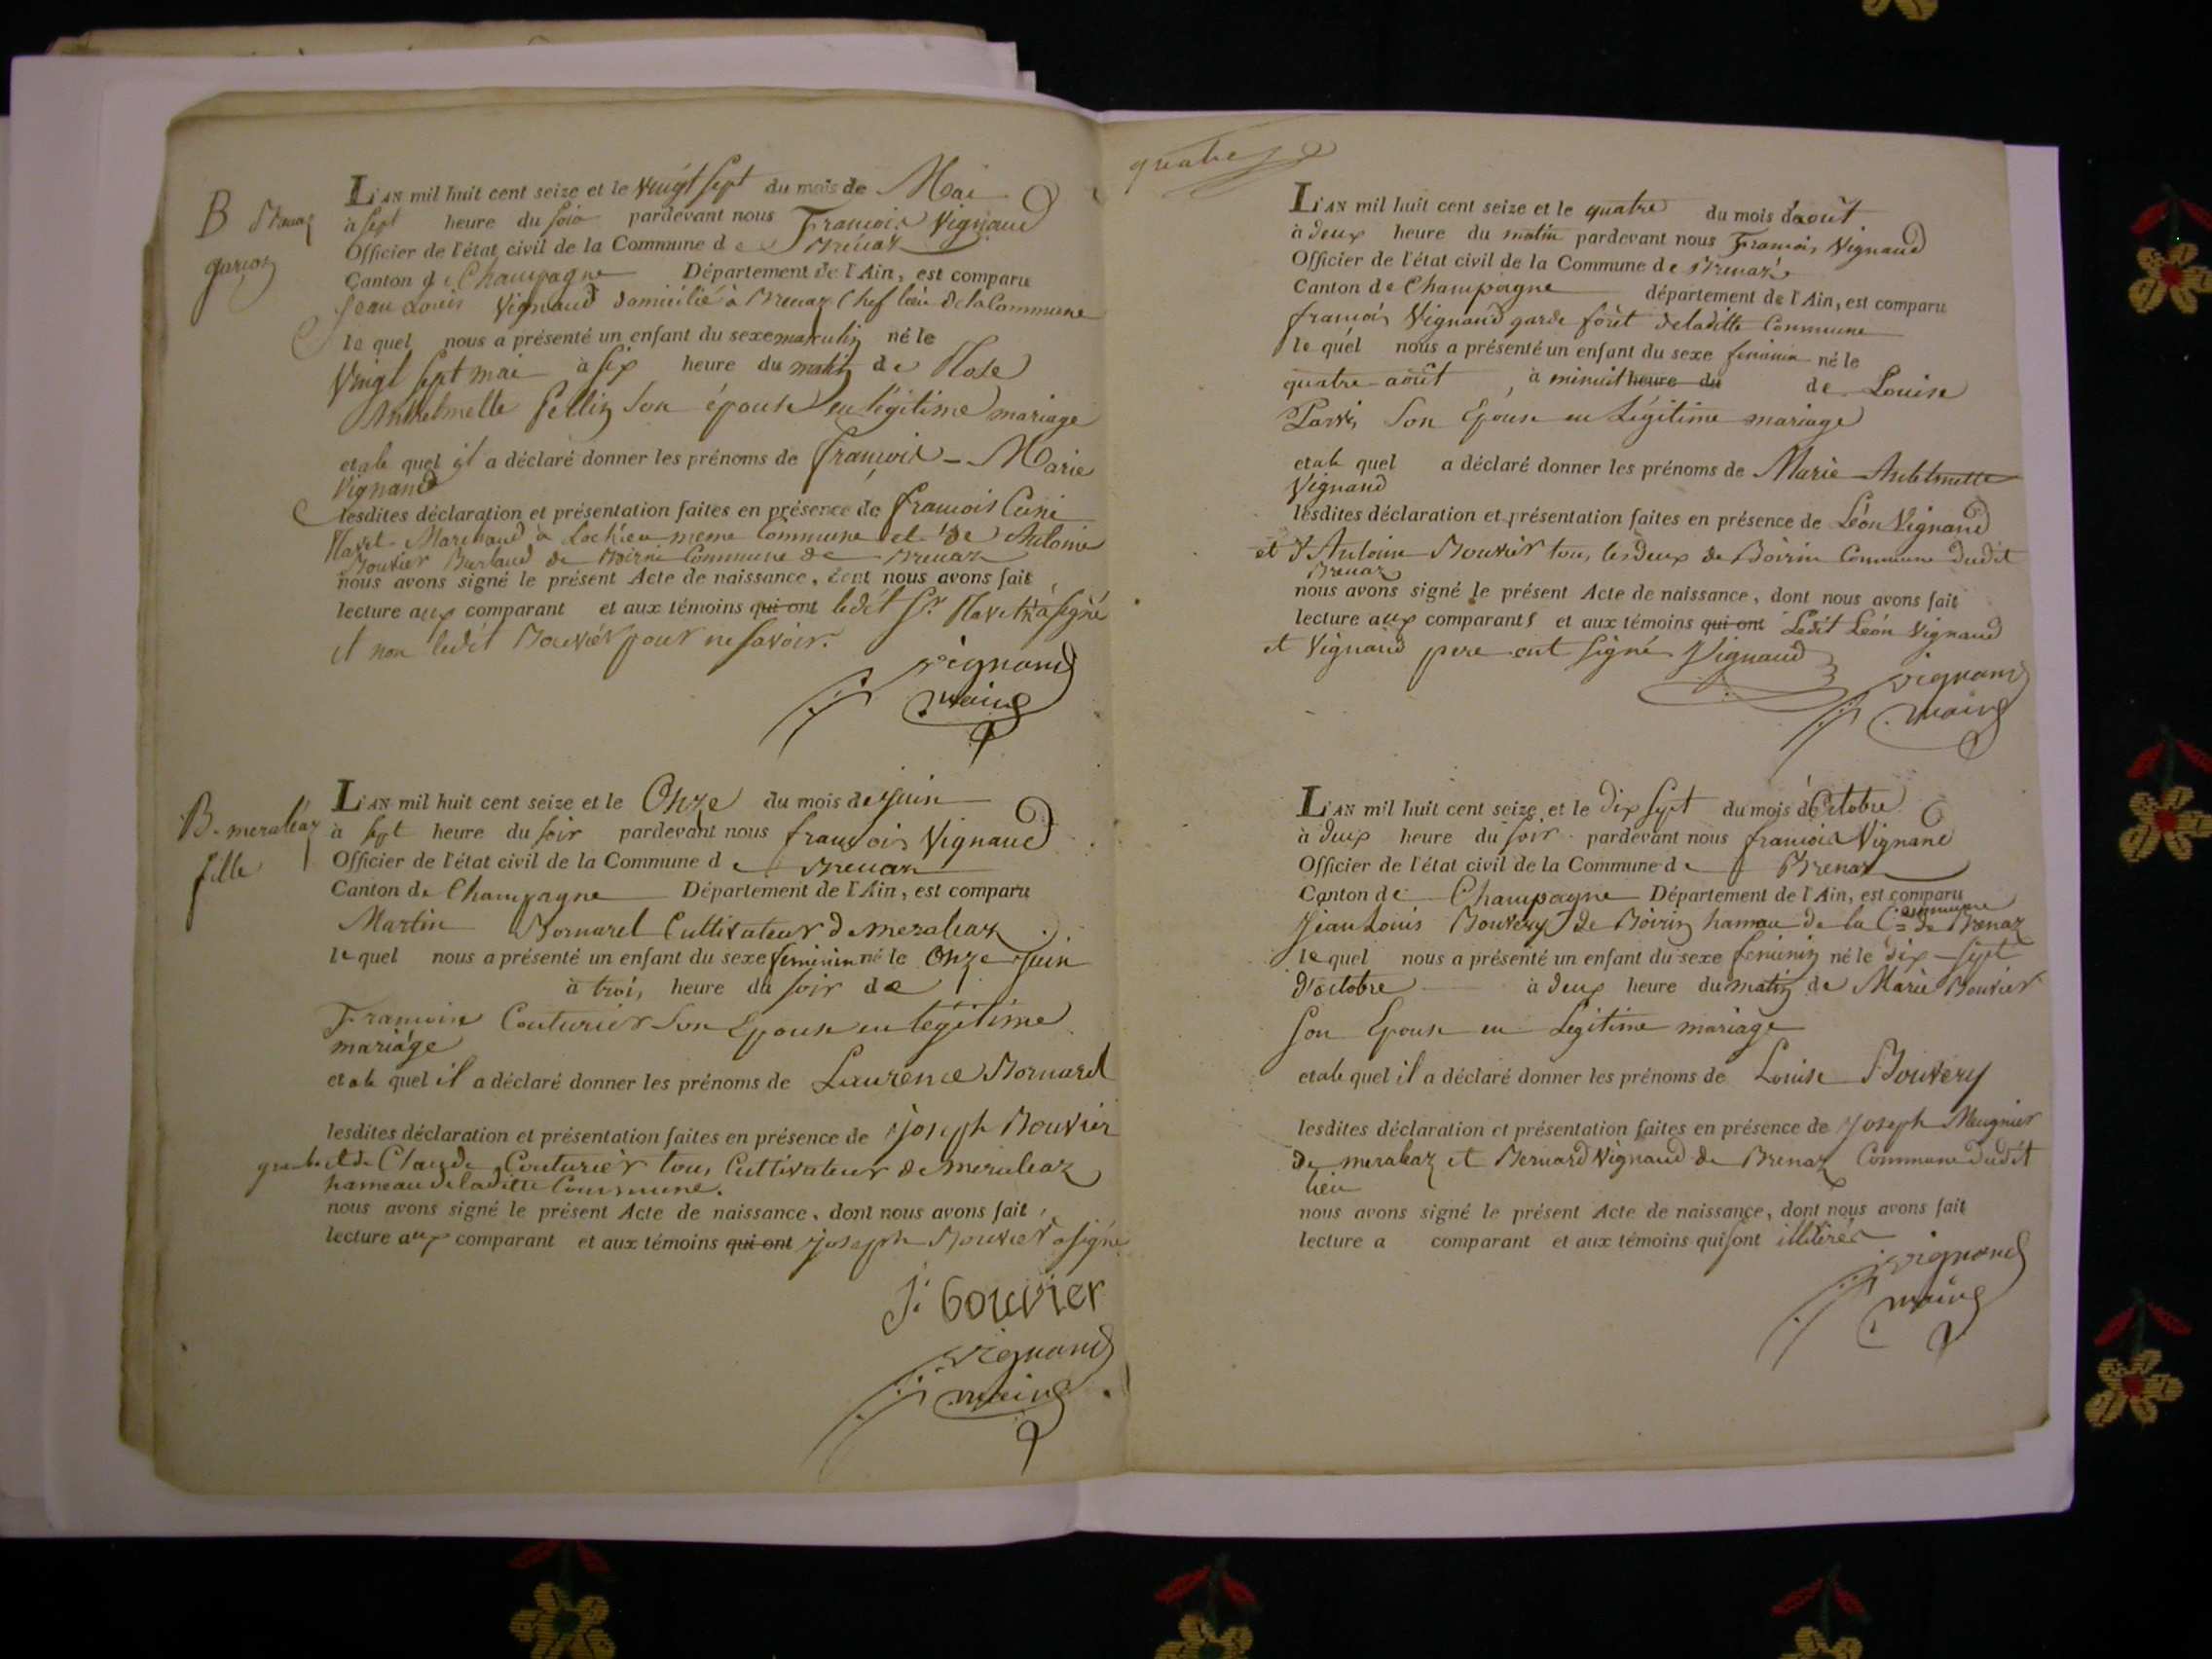 B Brenaz
garçon
L'AN mil huit cent seize et le vingt sept du mois de Mai
à sept heure du soir pardevant nous François Vignand
Officier de l'état civil de la Commune de Brenaz
Canton de Champagne Département de l'Ain, est comparu
Jean Louis Vignand domicilié à Brenaz Chef lieu de la Commune
le quel nous a présenté un enfant du sexe masculin né le
vingt sept mai à six heure du matin de
Anthelmette son épouse en légitime mariage
et a le quel il a déclaré donner les prénoms de François - Marie
Vignand
lesdites déclaration et présentation faites en présence de françois
Marchand à Lochieu meme Commune et de Antoine
Bouvier de Commune de Brenaz
nous avons signé le présent Acte de naissance, dont nous avons fait
lecture aux comparant et aux témoins qui ont ledit Sr. a signé
et non ledit Bouvier pour ne savoir.
vignand
maire
B. meraleaz
fille
L'AN mil huit cent seize et le Onze du mois de juin
à sept heure du soir pardevant nous françois Vignand
Officier de l'état civil de la Commune de Brenaz
Canton de Champagne Département de l'Ain, est comparu
Martin Bornarel Cultivateur de meraleaz
le quel nous a présenté un enfant du sexe feminin né le Onze juin
à trois heure du soir de
Francoise Couturier son Epouse en legitime
mariage
et a le quel il a déclaré donner les prénoms de Laurence Bornarel
lesdites déclaration et présentation faites en présence de joseph Bouvier
et de Claude Couturier tous Cultivateur de meraleaz
hameau de laditte Commune.
nous avons signé le présent Acte de naissance, dont nous avons fait
lecture aux comparant et aux témoins qui ont joseph Bouvier a signé
J. bouvier
vignand
maire
quatre
L'AN mil huit cent seize et le quatre du mois d'août
à deux heure du matin pardevant nous François Vignand
Officier de l'état civil de la Commune de Brenaz
Canton de Champagne département de l'Ain, est comparu
françois Vignand garde forêt de laditte Commune
le quel nous a présenté un enfant du sexe feminin né le
quatre août à minuit heure du de Louise
son Epouse en Légitime mariage
et a le quel a déclaré donner les prénoms de Marie Anthelmette
Vignand
lesdites déclaration et présentation faites en présence de Léon Vignand
et d'Antoine Bouvier tous les deux de Boirin Commune dudit
Brenaz
nous avons signé le présent Acte de naissance, dont nous avons fait
lecture aux comparants et aux témoins qui ont Ledit Léon Vignand
et Vignand pere ont signé Vignand
vignand
maire
L'AN mil huit cent seize et le dix sept du mois d'Octobre
à deux heure du soir pardevant nous françois Vignand
Officier de l'état civil de la Commune de Brenaz
Canton de Champagne Département de l'Ain, est comparu
Jean Louis Bouvery de Boirin hameau de la Commune de Brenaz
le quel nous a présenté un enfant du sexe feminin né le dix-sept
d'octobre à deux heure du matin de Marie Bouvier
son Epouse en Legitime mariage
et a le quel il a déclaré donner les prénoms de Louise Bouvery
lesdites déclaration et présentation faites en présence de Joseph Meugnier
de meraleaz et Bernard Vignand de Brenaz Commune dudit
lieu
nous avons signé le présent Acte de naissance, dont nous avons fait
lecture a comparant et aux témoins qui sont illitérés
vignand
maire